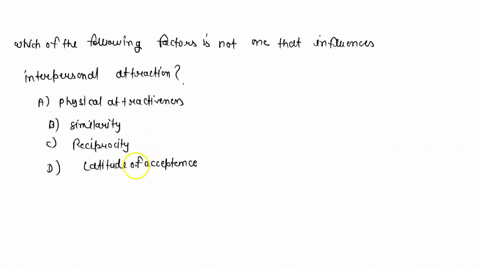 which of the following factors is not one that influences
interpersonal attraction?
A) physical attractiveness
B) similarity
C) Reciprocity
D) Latitude of acceptence